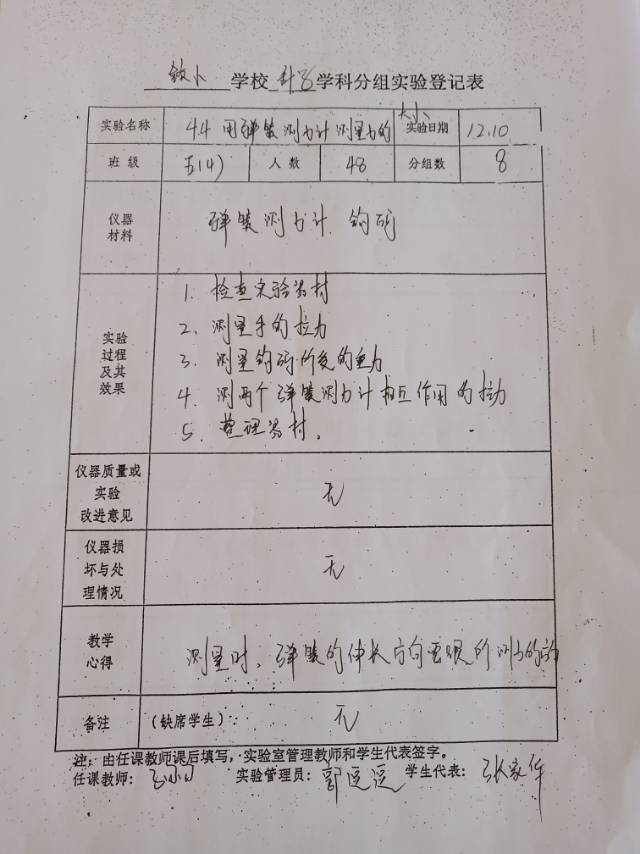 小 学校 科学 学科分组实验登记表
实验名称 4.4 用弹簧测力计测量力的大小 实验日期 12.10
班 级 五(4) 人 数 48 分组数 8
仪器
材料
弹簧测力计 钩码
实验
过程
及其
效果
1. 检查实验器材
2. 测量手的拉力
3. 测量钩码所受的重力
4. 测两个弹簧测力计相互作用的拉力
5. 整理器材.
仪器质量或
实验
改进意见
无
仪器损
坏与处
理情况
无
教学
心得
测量时, 弹簧的伸长方向要跟所测力的方
备注 (缺席学生): 无
注: 由任课教师课后填写, 实验室管理教师和学生代表签字。
任课教师: 实验管理员: 郭 学生代表: 张家